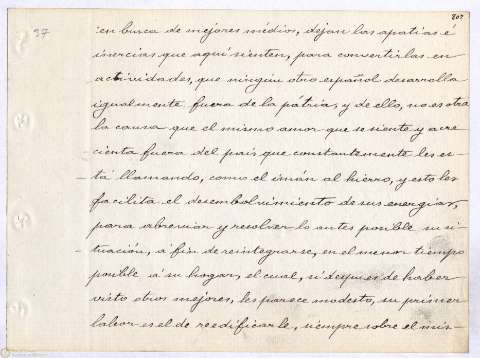 802
37
en busca de mejores médios, dejan las apatías é
inercias que aquí sienten, para convertirlas en
actividades, que ningún otro español desarrolla
igualmente fuera de la pátria, y de ello, no es otra
la causa que el mismo amor que se siente y acre-
cienta fuera del país que constantemente les es-
tá llamando, como el imán al hierro, y esto les
facilita el desembolvimiento de sus energías,
para abreviar y resolver lo antes posible su si-
tuación, a fin de reintegrarse, en el menor tiempo
posible á su hogar, el cual, si despues de haber
visto otros mejores, les parece modesto, su primer
labor es el de reedificarle, siempre sobre el mis-